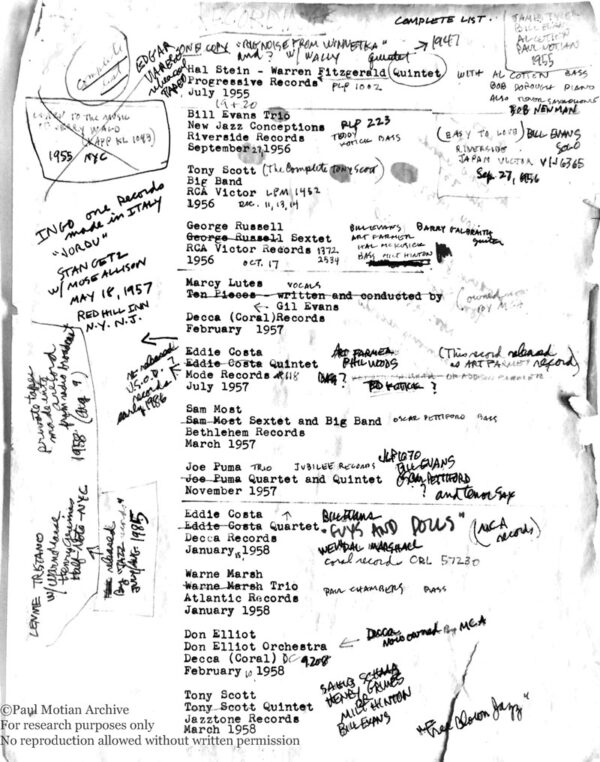 COMPLETE LIST..
JAMES TYLER
BILL EVANS
AL COTTON
PAUL MOTIAN
1955
complete list
EDGAR VARESE
ONE COPY "BIG NOISE FROM WINNETKA"
and ? w/ WALLY
quintet
1947
Hal Stein - Warren Fitzgerald (Quintet)
Progressive Records PLP 1002
July 1955
19 + 20
WITH AL COTTON BASS
BOB DOROUGH PIANO
ALSO TENOR SAXOPHONE
BOB NEWMAN
TO THE MUSIC
JERRY WALD
(KAPP KL 1043)
1955 NYC
Bill Evans Trio
New Jazz Conceptions RLP 223
Riverside Records TEDDY
September 27, 1956 KOTICK BASS
(EASY TO LOVE) BILL EVANS
SOLO
RIVERSIDE
JAPAN VICTOR VIJ 6365
Sep. 27, 1956
Tony Scott (The Complete Tony Scott)
Big Band
RCA Victor LPM 1452
1956 DEC. 11, 13, 14
INGO one Records
made in ITALY
"JORDU"
STAN GETZ
w/ MOSE ALLISON
MAY 18, 1957
RED HILL INN
N.Y. N.J.
George Russell
George Russell Sextet
RCA Victor Records 1372
2534
1956 OCT. 17
BILL EVANS BARRY GALBRAITH
guitar
ART FARMER
HAL McKUSICK
BASS MILT HINTON
Marcy Lutes VOCALS
Ten Pieces - written and conducted by
Gil Evans
Decca (Coral) Records
February 1957
(owned now
by MCA
re released
V.S.O.D. ?
records
early 1986
Eddie Costa
Eddie Costa Quintet
Mode Records #118
July 1957
ART FARMER
PHIL WOODS
BASS ?
TED KOTICK ?
(This record released
as ART FARMER record)
OR ADDISON FARMER
private tapes
made in
Hartford
from radio broadcast
1958 (Aug 9)
Sam Most
Sam Most Sextet and Big Band OSCAR PETTIFORD BASS
Bethlehem Records
March 1957
Joe Puma TRIO JUBILEE RECORDS JLP 1070
Joe Puma Quartet and Quintet
November 1957
BILL EVANS
OSCAR PETTIFORD
?
and tenor sax
LENNIE TRISTANO
w/ Warne Marsh
Henry Grimes
Half Note - NYC
released
by JAZZ records
July/Aug. 1985
Eddie Costa
Eddie Costa Quartet
Decca Records
January, 1958
BILL EVANS
"GUYS AND DOLLS" (MCA
records)
WENDAL MARSHALL
coral record CRL 57230
Warne Marsh
Warne Marsh Trio
Atlantic Records
January 1958
PAUL CHAMBERS BASS
Don Elliot
Don Elliot Orchestra
Decca (Coral) DC 9208
February 1958
DECCA
now owned by MCA
Tony Scott
Tony Scott Quintet
Jazztone Records
March 1958
SAHIB SCHIAB
HENRY GRIMES
OR
MILT HINTON
BILL EVANS
"Free Blown Jazz"
©Paul Motian Archive
For research purposes only
No reproduction allowed without written permission